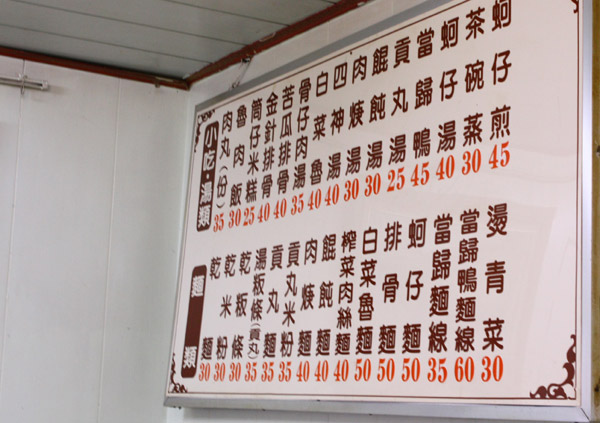 小吃·湯類
肉丸(仔) 35
魯肉飯 30
筒仔米糕 25
金針排骨 40
苦瓜排骨 40
骨仔肉湯 35
白菜魯 40
四神湯 40
肉焿湯 30
餛飩湯 30
貢丸湯 25
當歸鴨 45
蚵仔湯 40
茶碗蒸 30
蚵仔煎 45
麵類
乾麵 30
乾米粉 30
乾板條 30
湯板條(貢丸) 35
貢丸麵 35
貢丸米粉 35
肉焿麵 40
餛飩麵 40
榨菜肉絲麵 40
白菜魯麵 50
排骨麵 50
蚵仔麵 50
當歸麵線 35
當歸鴨麵線 60
燙青菜 30